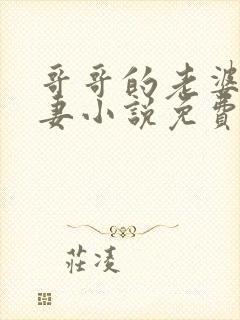 哥哥的老婆
妻小說免費
莊凌